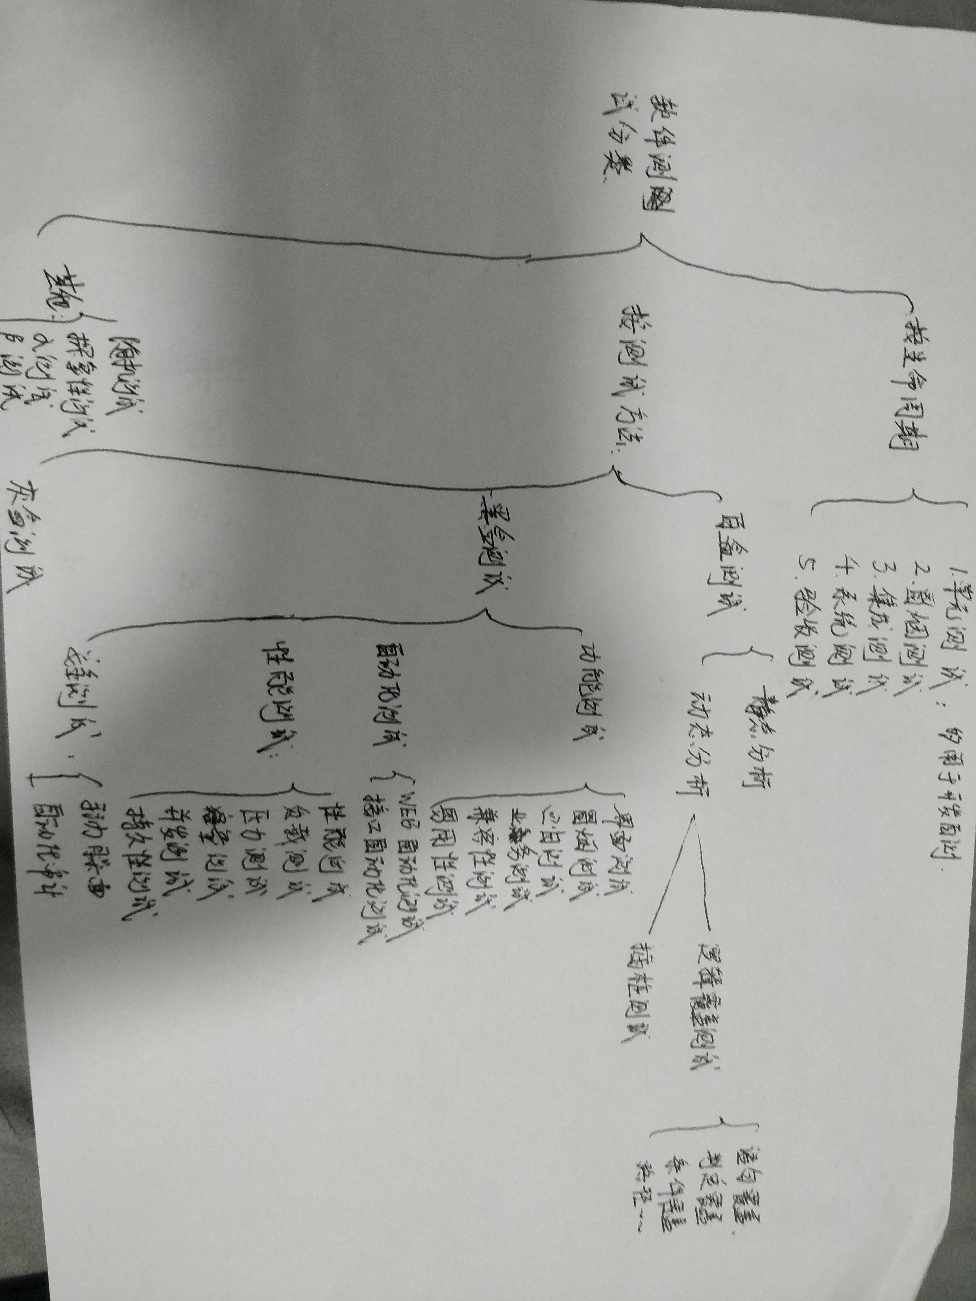 软件测
试分类
按生命周期
1.单元测试: 多用于开发自测
2.冒烟测试
3.集成测试
4.系统测试
5.验收测试
按测试方法:
白盒测试
静态分析
动态分析
逻辑覆盖测试
语句覆盖
判定覆盖
条件覆盖
路径…
插桩测试
黑盒测试
功能测试
界面测试
回归测试
业务测试
兼容性测试
易用性测试
自动化测试
WEB自动化测试
接口自动化测试
性能测试:
性能测试
负载测试
压力测试
并发测试
持久性测试
安全测试:
灰盒测试
其他:
探索性测试
α测试
β测试